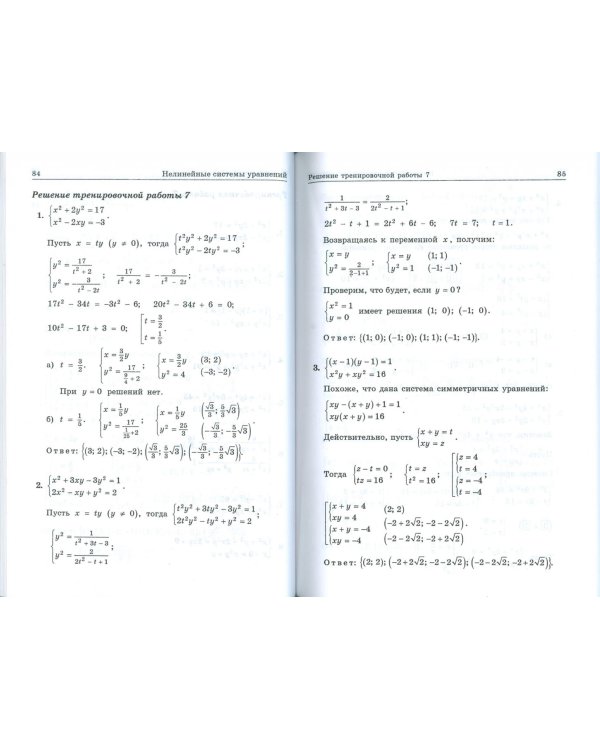 84 Нелинейные системы уравнений
Решение тренировочной работы 7
1. {x² + 2y² = 17
x² − 2xy = −3
Пусть x = ty (y ≠ 0), тогда {t²y² + 2y² = 17
t²y² − 2ty² = −3;
{y² = 17/(t² + 2)
y² = −3/(t² − 2t); 17/(t² + 2) = −3/(t² − 2t)
17t² − 34t = −3t² − 6; 20t² − 34t + 6 = 0;
10t² − 17t + 3 = 0; [t = 3/2
t = 1/5.
а) t = 3/2. {x = 3/2 y
y² = 17/(9/4 + 2) {x = 3/2 y
y² = 4 (3; 2)
(−3; −2).
При y = 0 решений нет.
б) t = 1/5. {x = 1/5 y
y² = 17/(1/25 + 2) {x = 1/5 y
y² = 25/3 (√3/3; 5/3 √3)
(−√3/3; −5/3 √3).
Ответ: {(3; 2); (−3; −2); (√3/3; 5/3 √3); (−√3/3; −5/3 √3)}.
2. {x² + 3xy − 3y² = 1
2x² − xy + y² = 2.
Пусть x = ty (y ≠ 0), тогда {t²y² + 3ty² − 3y² = 1
2t²y² − ty² + y² = 2
{y² = 1/(t² + 3t − 3)
y² = 2/(2t² − t + 1);
Решение тренировочной работы 7 85
1/(t² + 3t − 3) = 2/(2t² − t + 1);
2t² − t + 1 = 2t² + 6t − 6; 7t = 7; t = 1.
Возвращаясь к переменной x, получим:
{x = y
y² = 2/(2−1+1); {x = y
y² = 1 (1; 1)
(−1; −1).
Проверим, что будет, если y = 0?
{x² = 1
y = 0 имеет решения (1; 0); (−1; 0).
Ответ: {(1; 0); (−1; 0); (1; 1); (−1; −1)}.
3. {(x − 1)(y − 1) = 1
x²y + xy² = 16.
Похоже, что дана система симметричных уравнений:
{xy − (x + y) + 1 = 1
xy(x + y) = 16.
Действительно, пусть {x + y = t
xy = z.
Тогда {z − t = 0
tz = 16; {t = z
t² = 16; [{z = 4
t = 4
{z = −4
t = −4
[{x + y = 4
xy = 4
{x + y = −4
xy = −4 (2; 2)
(−2 + 2√2; −2 − 2√2)
(−2 − 2√2; −2 + 2√2).
Ответ: {(2; 2); (−2 + 2√2; −2 − 2√2); (−2 − 2√2; −2 + 2√2)}.